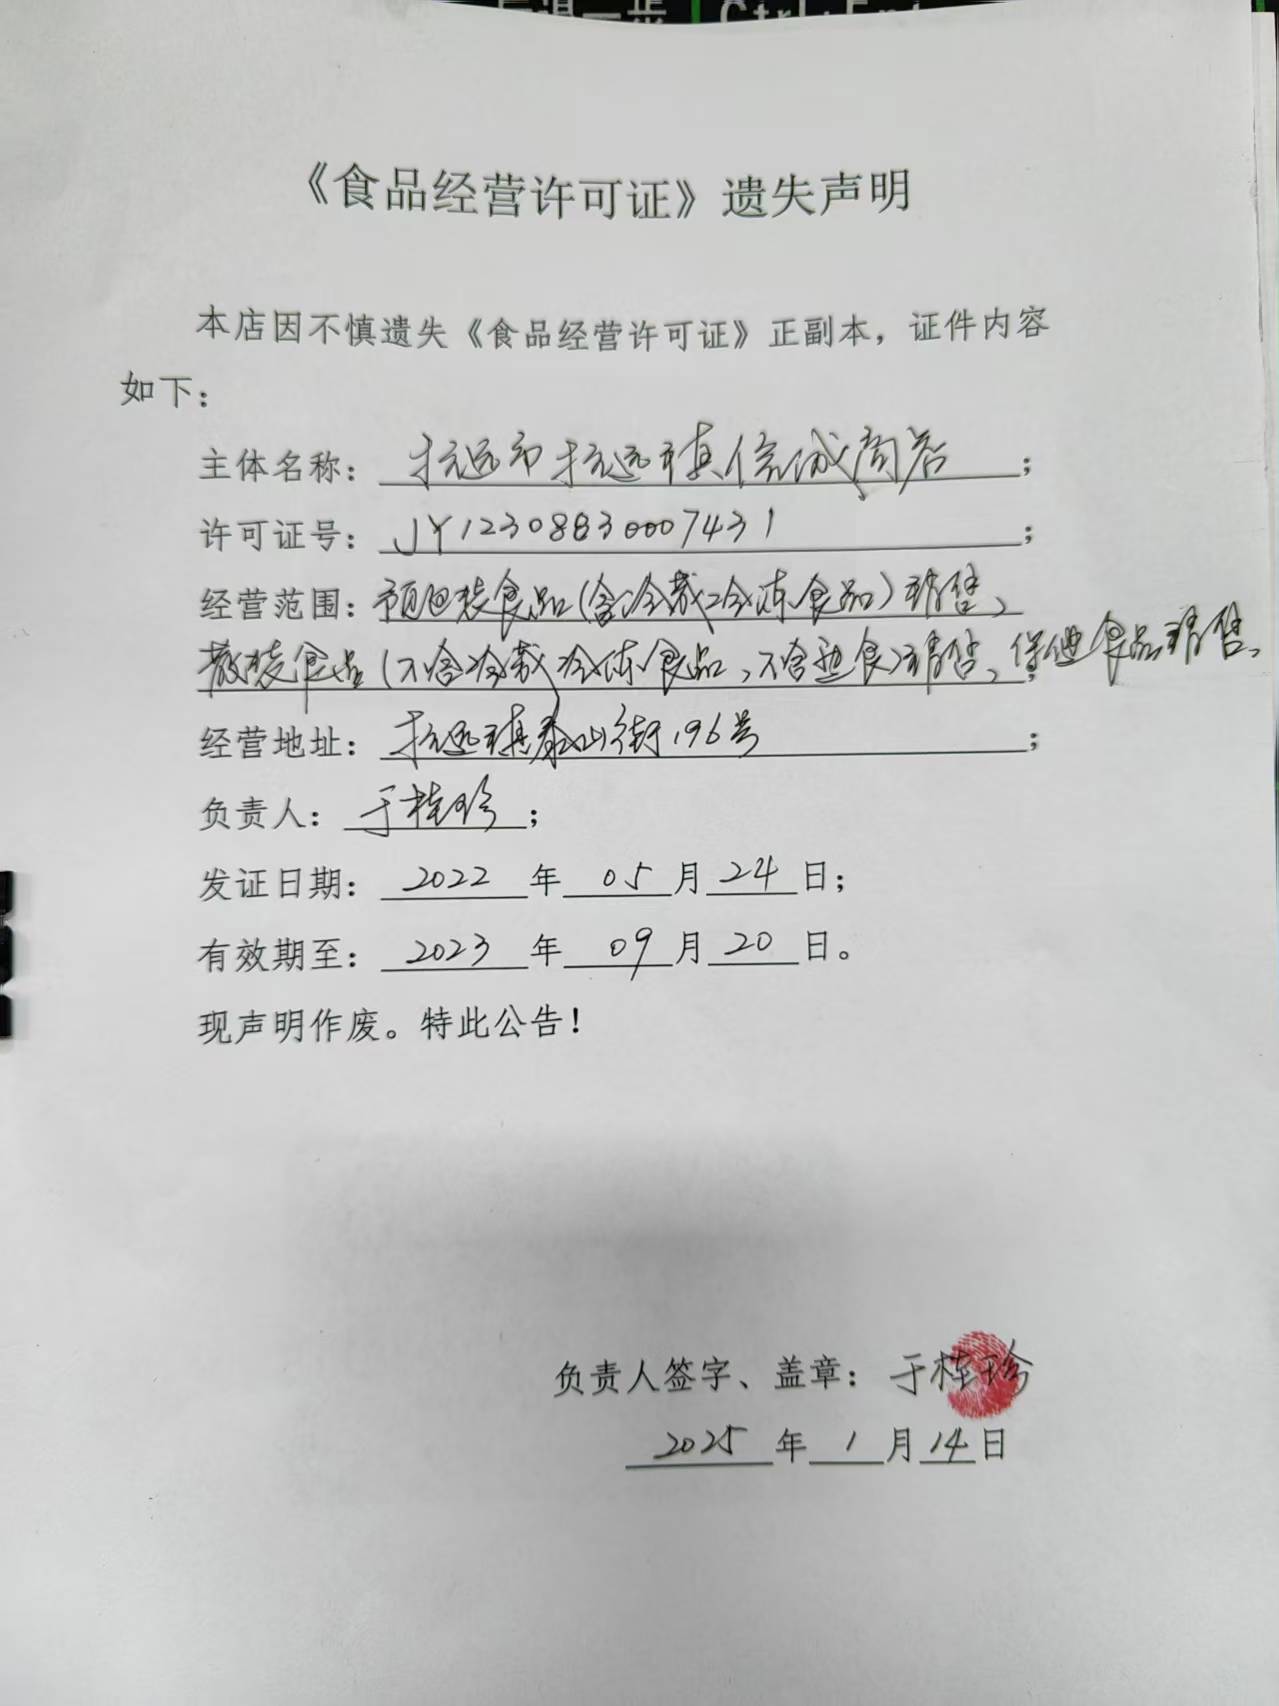 Ctrl+Ent
《食品经营许可证》遗失声明
本店因不慎遗失《食品经营许可证》正副本，证件内容
如下：
主体名称：抚远市抚远镇信诚商店；
许可证号：JY12308830007431；
经营范围：预包装食品（含冷藏冷冻食品）销售、
散装食品（不含冷藏冷冻食品、不含熟食）销售、保健食品销售、；
经营地址：抚远镇泰山街196号；
负责人：于桂珍；
发证日期：2022年05月24日；
有效期至：2023年09月20日。
现声明作废。特此公告！
负责人签字、盖章：于桂珍
2025年1月14日